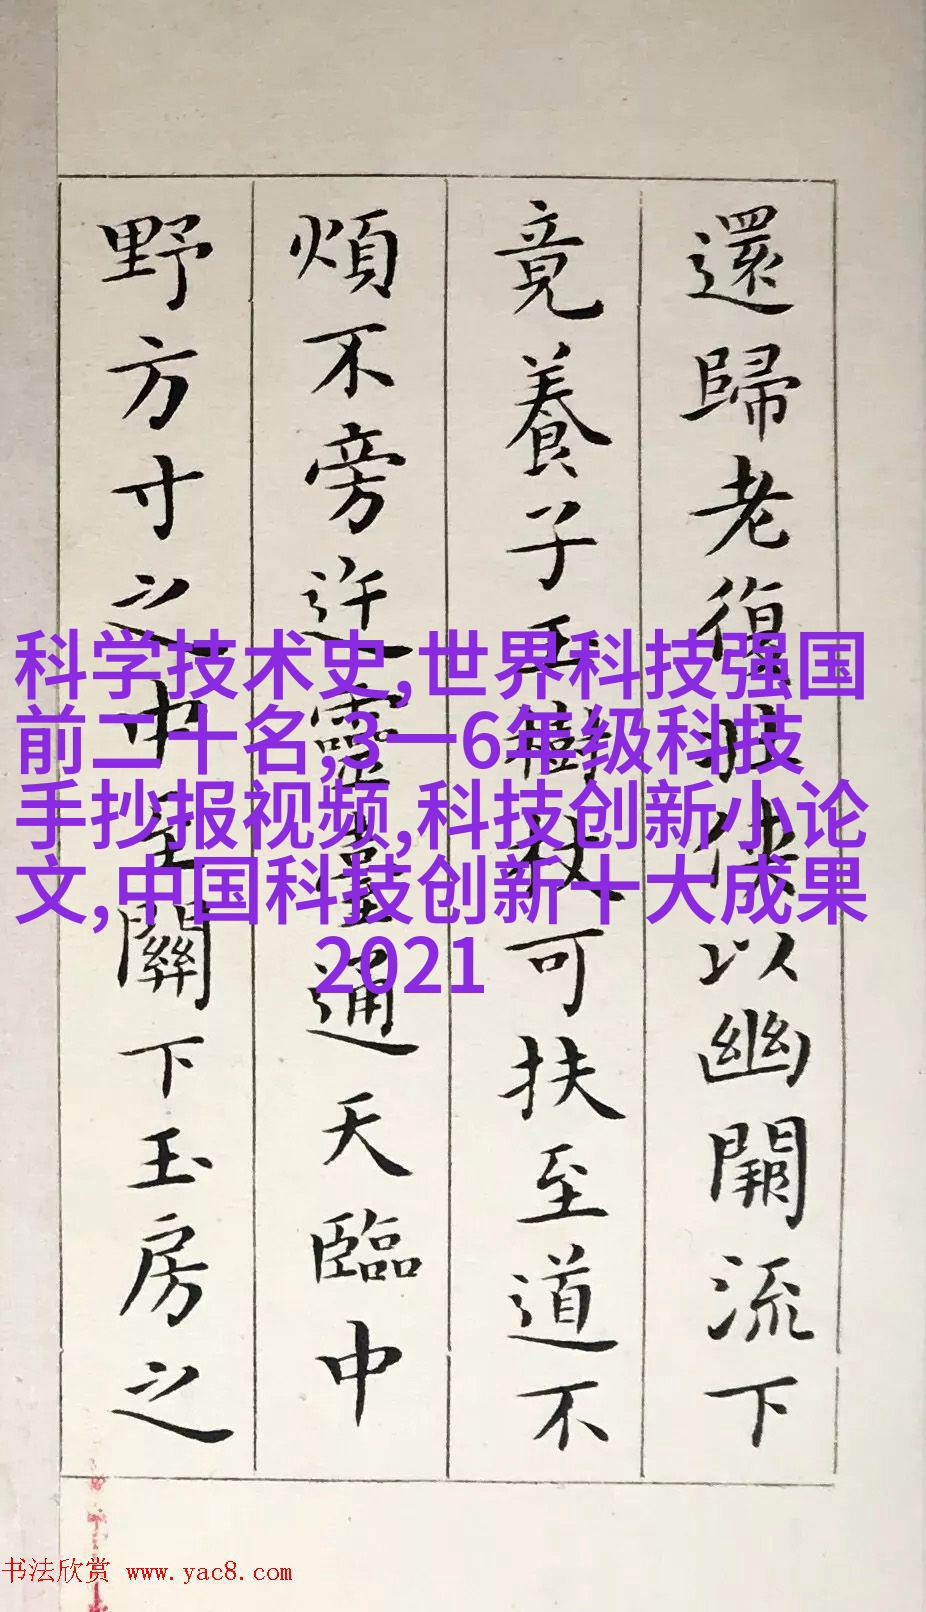 還歸老復壯俠以幽闕流下
竟養子玉樹杖可扶至道不
煩不旁迕靈臺通天臨中
野方寸之中至關下玉房之
科学技术史,世界科技强国
前二十名,3一6年级科技
手抄报视频,科技创新小论
文,中国科技创新十大成果
2021
书法欣赏 www.yac8.com